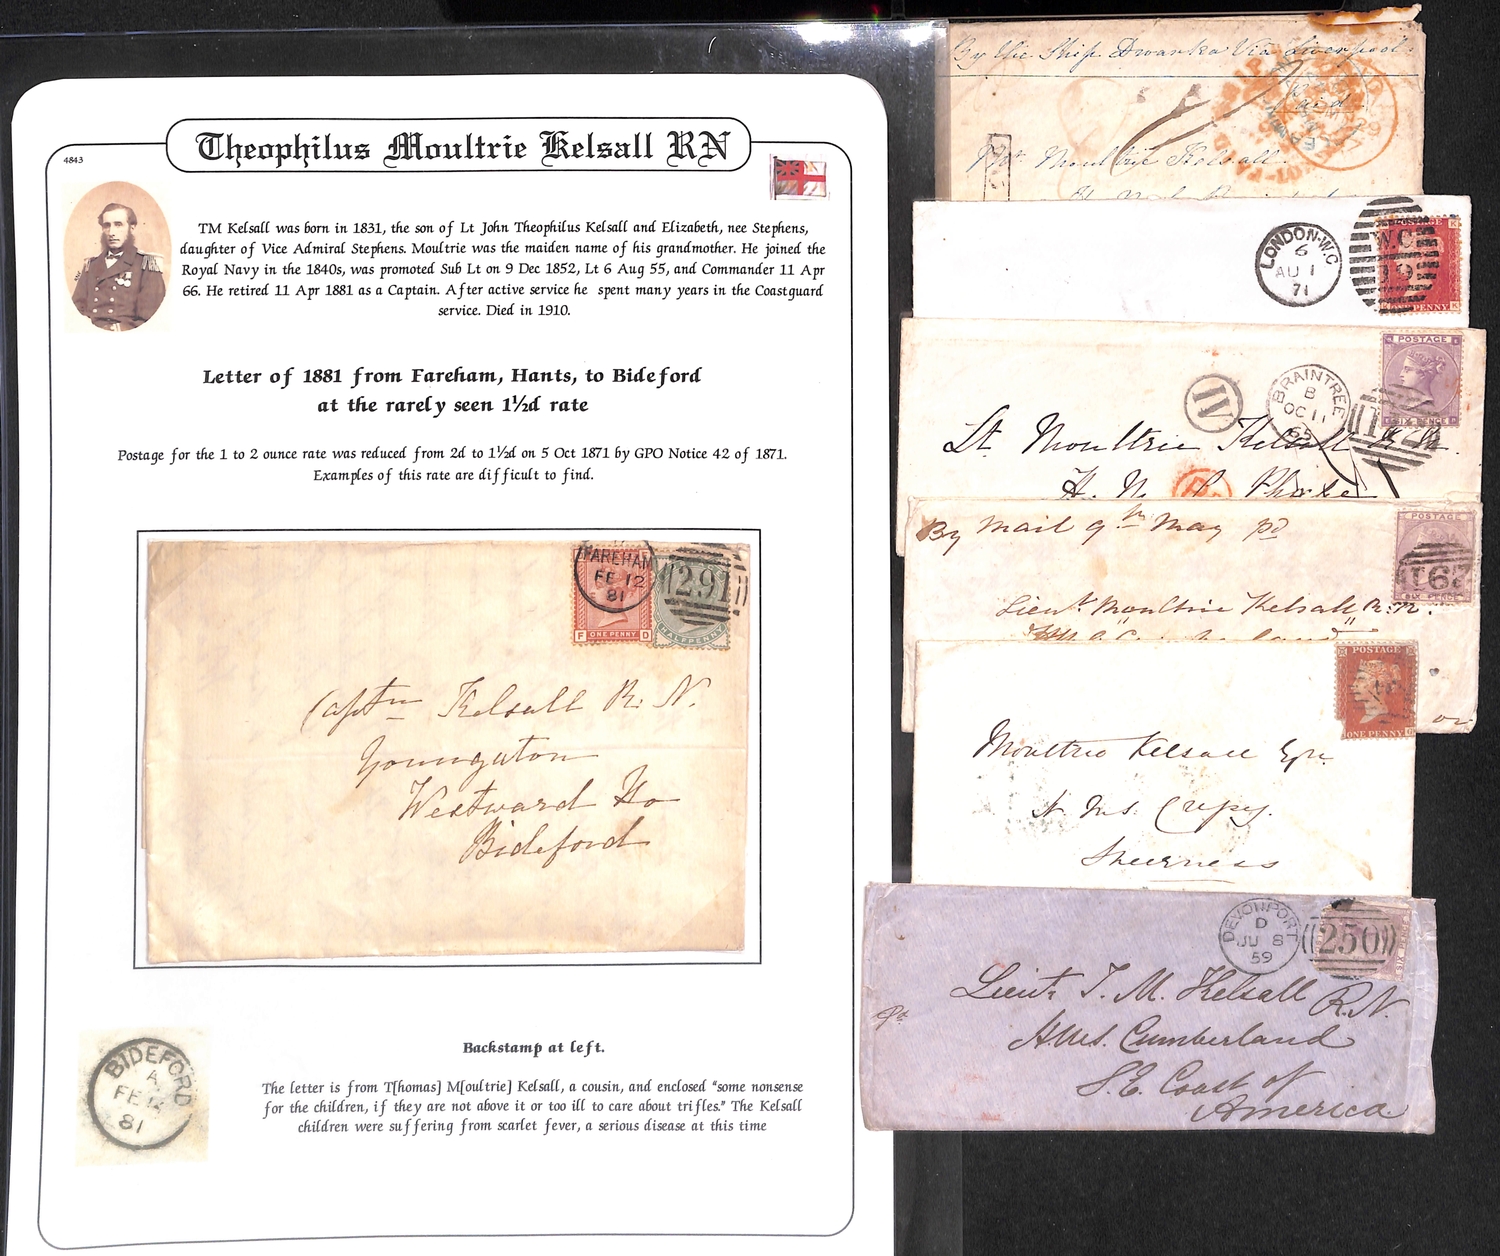 4843
Theophilus Moultrie Kelsall RN
TM Kelsall was born in 1831, the son of Lt John Theophilus Kelsall and Elizabeth, nee Stephens,
daughter of Vice Admiral Stephens. Moultrie was the maiden name of his grandmother. He joined the
Royal Navy in the 1840s, was promoted Sub Lt on 9 Dec 1852, Lt 6 Aug 55, and Commander 11 Apr
66. He retired 11 Apr 1881 as a Captain. After active service he spent many years in the Coastguard
service. Died in 1910.
Letter of 1881 from Fareham, Hants, to Bideford
at the rarely seen 1½d rate
Postage for the 1 to 2 ounce rate was reduced from 2d to 1½d on 5 Oct 1871 by GPO Notice 42 of 1871.
Examples of this rate are difficult to find.
FAREHAM
FE 12
81
291
F ONE PENNY D
HALFPENNY
Captn Kelsall R. N.
Youngaton
Westward Ho
Bideford
BIDEFORD
A
FE 12
81
Backstamp at left.
The letter is from T[homas] M[oultrie] Kelsall, a cousin, and enclosed "some nonsense
for the children, if they are not above it or too ill to care about trifles." The Kelsall
children were suffering from scarlet fever, a serious disease at this time
By the Ship Dwarka Via Liverpool.
Moultrie Kelsall
LONDON·W.C
6
AU 1
71
W.C
19
PENNY K
BRAINTREE
B
OC 11
65
IV
POSTAGE
SIX PENCE
Lt Moultrie Kelsall R.N.
H. M. S.
By Mail 9th May pd
POSTAGE
SIX PENCE
Lieut Moultrie Kelsall R.N.
or
POSTAGE
ONE PENNY
Moultrie Kelsall Esqr.
H. M. S.
Sheerness
DEVONPORT
D
JU 8
59
250
Lieut. T. M. Kelsall R.N.
H.M.S. Cumberland
S.E. Coast of
America